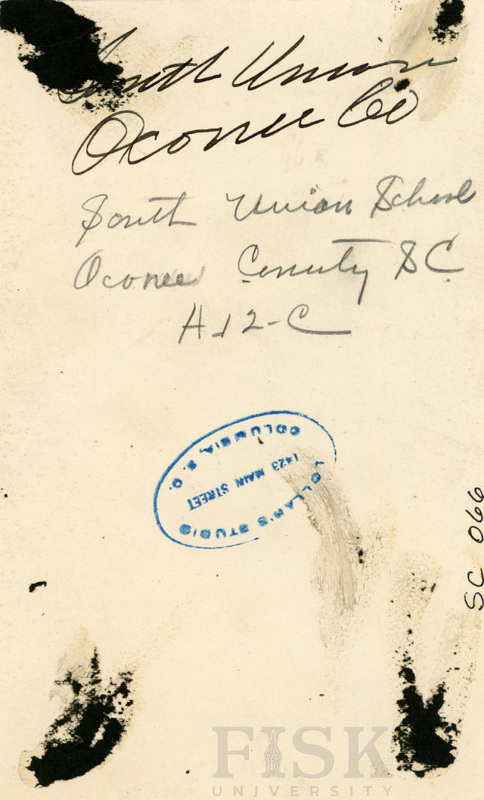 South Union
Oconee Co
South Union School
Oconee County SC
H12-C
COLUMBIA, S. C.
1423 MAIN STREET
STUDIO
SC 066
FISK
UNIVERSITY